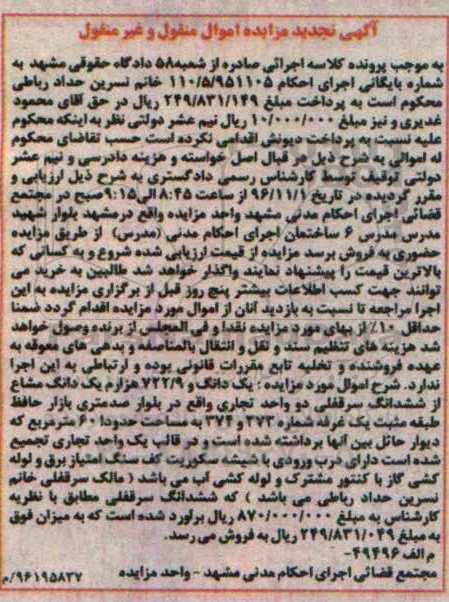 آگهی تجدید مزایده اموال منقول و غیر منقول
به موجب پرونده کلاسه اجرائی صادره از شعبه۵۸ دادگاه حقوقی مشهد به
شماره بایگانی اجرای احکام ۱۱۰/۵/۹۵۱۱۰۵ خانم نسرین حداد رباطی
محکوم است به پرداخت مبلغ ۲۴۹/۸۳۱/۱۴۹ ریال در حق آقای محمود
غدیری و نیز مبلغ ۱۰/۰۰۰/۰۰۰ ریال نیم عشر دولتی نظر به اینکه محکوم
علیه نسبت به پرداخت دیونش اقدامی نکرده است حسب تقاضای محکوم
له اموالی به شرح ذیل در قبال اصل خواسته و هزینه دادرسی و نیم عشر
دولتی توقیف توسط کارشناس رسمی دادگستری به شرح ذیل ارزیابی و
مقرر گردیده در تاریخ ۹۶/۱۱/۱ از ساعت ۸:۴۵ الی۹:۱۵ صبح در مجتمع
قضائی اجرای احکام مدنی مشهد واحد مزایده واقع درمشهد بلوار شهید
مدرس مدرس ۶ ساختمان اجرای احکام مدنی (مدرس) از طریق مزایده
حضوری به فروش برسد مزایده از قیمت ارزیابی شده شروع و به کسانی که
بالاترین قیمت را پیشنهاد نمایند واگذار خواهد شد طالبین به خرید می
توانند جهت کسب اطلاعات بیشتر پنج روز قبل از برگزاری مزایده به این
اجرا مراجعه تا نسبت به بازدید آنان از اموال مورد مزایده اقدام گردد ضمنا
حداقل ۱۰٪ از بهای مورد مزایده نقدا و فی المجلس از برنده وصول خواهد
شد هزینه های تنظیم سند و نقل و انتقال بالمناصفه و بدهی های معوقه به
عهده فروشنده و تخلیه تابع مقررات قانونی بوده و ارتباطی به این اجرا
ندارد. شرح اموال مورد مزایده: یک دانگ و ۷۲۲/۹ هزارم یک دانگ مشاع
از ششدانگ سرقفلی دو واحد تجاری واقع در بلوار صدمتری بازار حافظ
طبقه مثبت یک غرفه شماره ۳۷۳ و ۳۷۴ به مساحت حدودا ۶۰ مترمربع که
دیوار حائل بین آنها برداشته شده است و در قالب یک واحد تجاری تجمیع
شده است دارای درب ورودی با شیشه سکوریت کف سنگ امتیاز برق و لوله
کشی گاز با کنتور مشترک و لوله کشی آب می باشد ( مالک سرقفلی خانم
نسرین حداد رباطی می باشد ) که ششدانگ سرقفلی مطابق با نظریه
کارشناس به مبلغ ۸۷۰/۰۰۰/۰۰۰ ریال برآورد شده است که به میزان فوق
به مبلغ ۲۴۹/۸۳۱/۰۴۹ ریال به فروش می رسد.
م الف ۴۹۴۹۶-
مجتمع قضائی اجرای احکام مدنی مشهد - واحد مزایده
۹۶۱۹۵۸۳۷/م